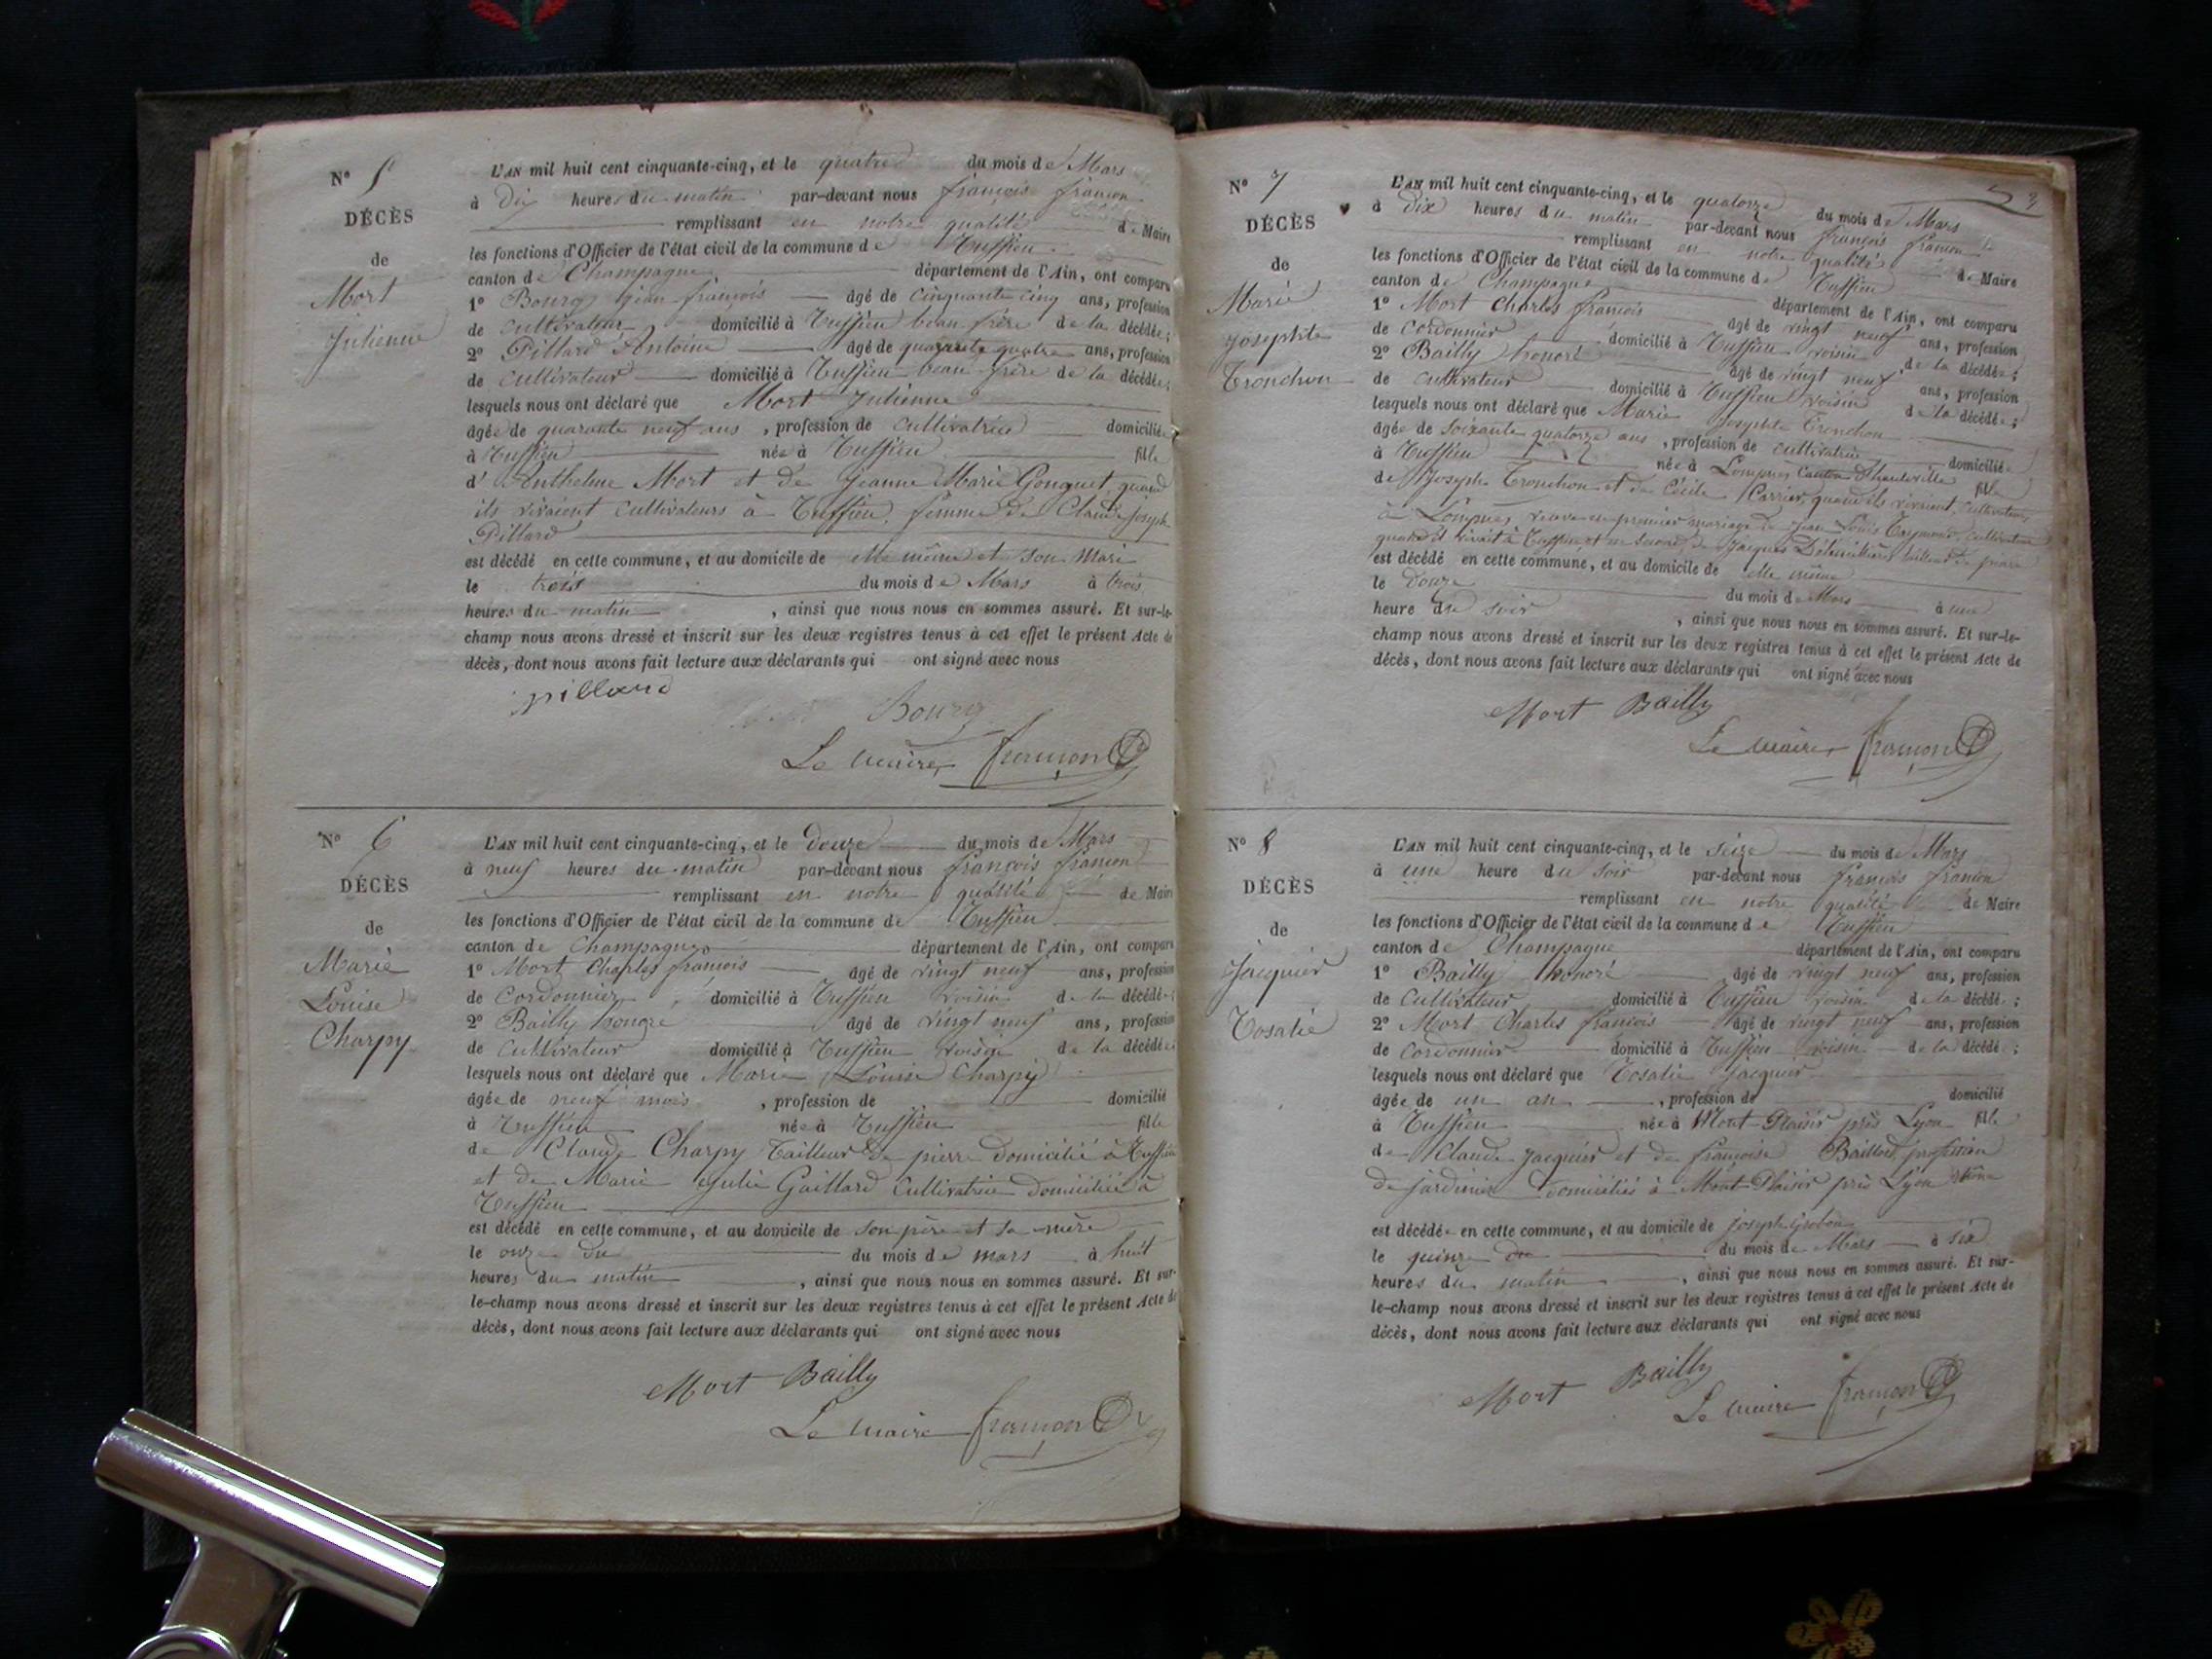 N° 5
DÉCÈS
de
Mort
Julienne
L'AN mil huit cent cinquante-cinq, et le quatre du mois de Mars
à Dix heures du matin par-devant nous françois françon
remplissant en notre qualité de Maire
les fonctions d'Officier de l'état civil de la commune de Ruffieu
canton de Champagne département de l'Ain, ont comparu
1° Bourg jean françois âgé de cinquante cinq ans, profession
de cultivateur domicilié à Ruffieu beau frère de la décédée;
2° Pillard Antoine âgé de quarante quatre ans, profession
de cultivateur domicilié à Ruffieu beau frère de la décédée;
lesquels nous ont déclaré que Mort Julienne
âgée de quarante neuf ans, profession de cultivatrice domiciliée
à Ruffieu née à Ruffieu fille
d' Anthelme Mort et de jeanne Marie Gonguet, quand
ils vivaient cultivateurs à Ruffieu, femme de Claude joseph
Pillard
est décédé en cette commune, et au domicile de elle même et son Mari
le trois du mois de Mars à trois
heures du matin, ainsi que nous nous en sommes assuré. Et sur-le-
champ nous avons dressé et inscrit sur les deux registres tenus à cet effet le présent Acte de
décès, dont nous avons fait lecture aux déclarants qui ont signé avec nous
pillard
Bourg
Le maire, françon
N° 6
DÉCÈS
de
Marie
Louise
Charpy
L'AN mil huit cent cinquante-cinq, et le Douze du mois de Mars
à neuf heures du matin par-devant nous françois françon
remplissant en notre qualité de Maire
les fonctions d'Officier de l'état civil de la commune de Ruffieu
canton de Champagne département de l'Ain, ont comparu
1° Mort Charles françois âgé de vingt neuf ans, profession
de Cordonnier domicilié à Ruffieu voisin de la décédée;
2° Bailly honoré âgé de vingt neuf ans, profession
de Cultivateur domicilié à Ruffieu voisin de la décédée
lesquels nous ont déclaré que Marie Louise Charpy
âgée de neuf mois, profession de domicilié
à Ruffieu née à Ruffieu fille
de Claude Charpy Tailleur de pierre domicilié à Ruffieu
et de Marie Julie Gaillard Cultivatrice domiciliée à
Ruffieu
est décédé en cette commune, et au domicile de son père et sa mère
le onze du du mois de mars à huit
heures du matin, ainsi que nous nous en sommes assuré. Et sur-
le-champ nous avons dressé et inscrit sur les deux registres tenus à cet effet le présent Acte de
décès, dont nous avons fait lecture aux déclarants qui ont signé avec nous
Mort Bailly
Le maire françon
3
N° 7
DÉCÈS
de
Marie
josephte
Tronchon
L'AN mil huit cent cinquante-cinq, et le quatorze du mois de Mars
à dix heures du matin par-devant nous françois françon
remplissant en notre qualité de Maire
les fonctions d'Officier de l'état civil de la commune de Ruffieu
canton de Champagne département de l'Ain, ont comparu
1° Mort Charles françois âgé de vingt neuf ans, profession
de Cordonnier domicilié à Ruffieu voisin de la décédée;
2° Bailly honoré âgé de vingt neuf ans, profession
de Cultivateur domicilié à Ruffieu voisin de la décédée;
lesquels nous ont déclaré que Marie Josephte Tronchon
âgée de soixante quatorze ans, profession de cultivatrice domiciliée
à Ruffieu née à Lompnes Canton d'hauteville fille
de Joseph Tronchon et de Cécile Carrier, quand ils vivaient, Cultivateurs
à Lompnes, veuve en premier mariage de jean Louis cultivateur
quand il vivait à Ruffieu, et en second, de jacques tailleur de pierre
est décédé en cette commune, et au domicile de elle même
le Douze du mois de Mars à une
heure du soir, ainsi que nous nous en sommes assuré. Et sur-le-
champ nous avons dressé et inscrit sur les deux registres tenus à cet effet le présent Acte de
décès, dont nous avons fait lecture aux déclarants qui ont signé avec nous
Mort Bailly
Le maire, françon
N° 8
DÉCÈS
de
Jacquier
Rosalie
L'AN mil huit cent cinquante-cinq, et le seize du mois de Mars
à une heure du soir par-devant nous françois françon
remplissant en notre qualité de Maire
les fonctions d'Officier de l'état civil de la commune de Ruffieu
canton de Champagne département de l'Ain, ont comparu
1° Bailly honoré âgé de vingt neuf ans, profession
de Cultivateur domicilié à Ruffieu voisin de la décédé;
2° Mort Charles françois âgé de vingt neuf ans, profession
de Cordonnier domicilié à Ruffieu voisin de la décédé;
lesquels nous ont déclaré que Rosalie Jacquier
âgée de un an, profession de domicilié
à Ruffieu née à Mont-Plaisir près Lyon fille
de Claude Jacquier et de françoise profession
de jardinier domiciliés à Mont-Plaisir près Lyon Rhône
est décédée en cette commune, et au domicile de joseph Grobon
le quinze du du mois de Mars à six
heures du matin, ainsi que nous nous en sommes assuré. Et sur-
le-champ nous avons dressé et inscrit sur les deux registres tenus à cet effet le présent Acte de
décès, dont nous avons fait lecture aux déclarants qui ont signé avec nous
Mort Bailly
Le maire françon